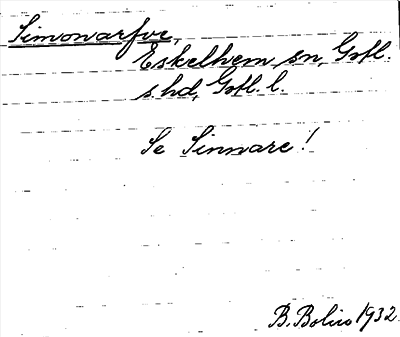 Simonarfve,
Eskelhem sn, Gotl.
s. hd, Gotl. l.
Se Sinnare!
B. Bolin 1932